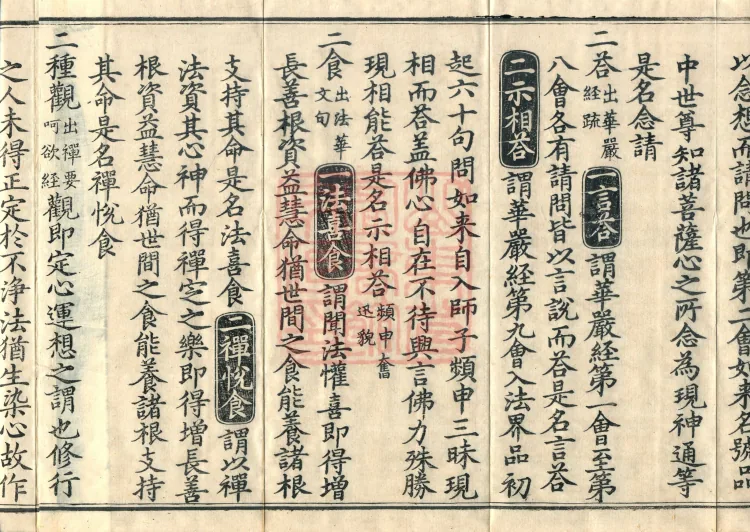 以念想而請問也即第二會如来名號品
中世尊知諸菩薩心之所念為現神通等
是名念請
二荅出華嚴經疏一言荅謂華嚴經第一會至第
八會各有請問皆以言說而荅是名言荅
二示相荅謂華嚴經第九會入法界品初
起六十句問如来自入師子頻申三昧現
相而荅盖佛心自在不待興言佛力殊勝
現相能荅是名示相荅頻申奮迅貌
二食出法華文句一法喜食謂聞法懽喜即得增
長善根資益慧命猶世間之食能養諸根
支持其命是名法喜食二禪悅食謂以禪
法資其心神而得禪定之樂即得增長善
根資益慧命猶世間之食能養諸根支持
其命是名禪悅食
二種觀出禪要呵欲經觀即定心運想之謂也修行
之人未得正定於不淨法猶生染心故作